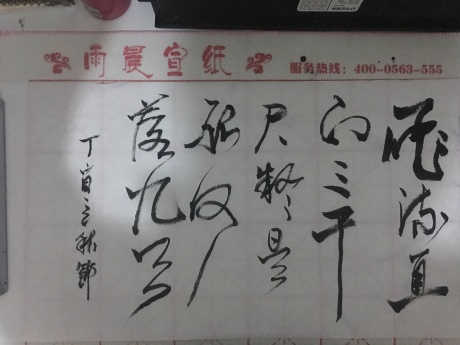 雨晨宣纸
服务热线：400-0563-555
飛流直
下三千
尺疑是
銀河
落九天
丁酉立秋節